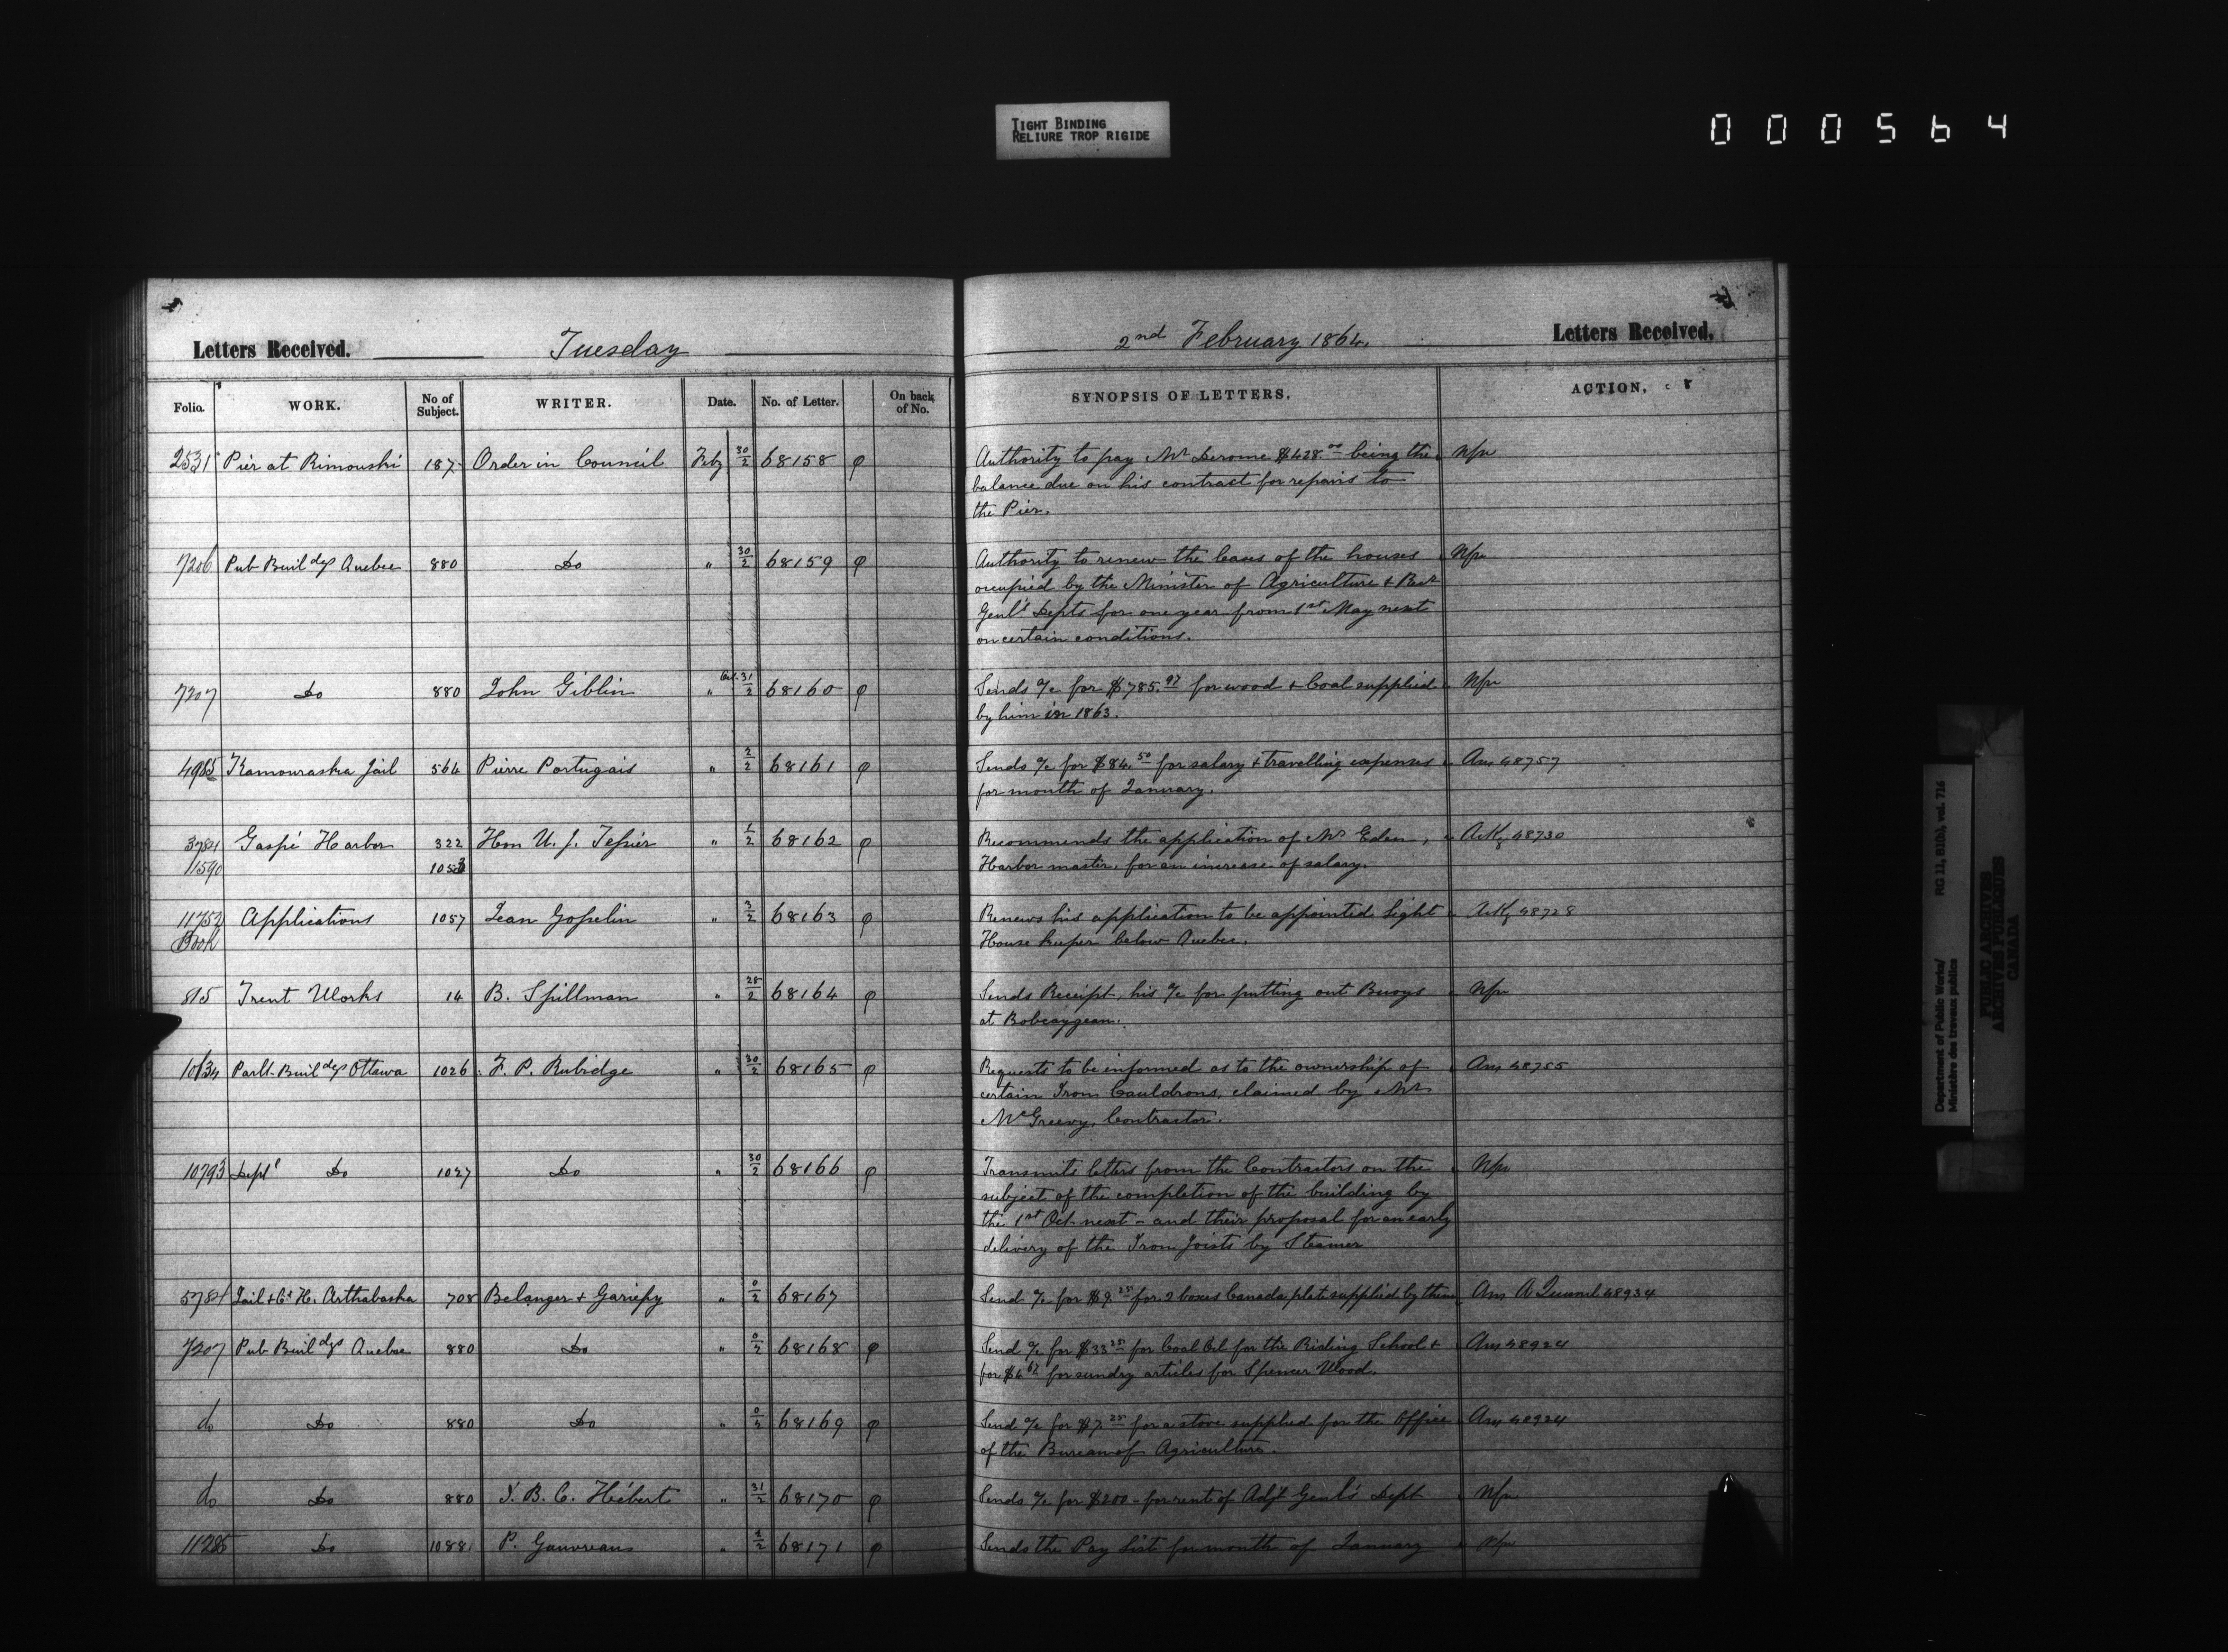 TIGHT BINDING
RELIURE TROP RIGIDE
000564
Letters Received. Tuesday
2nd February 1864. Letters Received.
Folio. WORK. No of Subject. WRITER. Date. No. of Letter. On back of No. SYNOPSIS OF LETTERS. ACTION.
2531 Pier at Rimouski 187 Order in Council Feby 30/2 68158 φ Authority to pay Mr Derome $428.00 being the Nfu
balance due on his contract for repairs to
the Pier.
7206 Pub Buildgs Quebec 880 Do " 30/2 68159 φ Authority to renew the leases of the houses Nfu
occupied by the Minister of Agriculture & Recr
Genl's Depts for one year from 1st May next
on certain conditions.
7207 Do 880 John Giblin " 31/2 68160 φ Sends a/c for $785.97 for wood & Coal supplied Nfu
by him in 1863.
4985 Kamouraska Jail 564 Pierre Portugais " 2/2 68161 φ Sends a/c for $84.50 for salary & travelling expenses Ans 48757
for month of January.
3784 Gaspé Harbor 322 Hon U. J. Tessier " 1/2 68162 φ Recommends the application of Mr Eden, Ackg 48730
11590 1053 Harbor master, for an increase of salary.
11752 Applications 1057 Jean Gosselin " 3/2 68163 φ Renews his application to be appointed Light Ackg 48728
Book House keeper below Quebec.
815 Trent Works 14 B. Spillman " 28/2 68164 φ Sends Receipt, his a/c for putting out Buoys Nfu
at Bobcaygean.
10134 Parlt. Buildgs Ottawa 1026 F. P. Rubidge " 30/2 68165 φ Requests to be informed as to the ownership of Ans 48755
certain Iron Cauldrons, claimed by Mr
McGreevy, Contractor.
10793 Deptl Do 1027 Do " 30/2 68166 φ Transmits letters from the Contractors on the Nfu
subject of the completion of the building by
the 1st Oct. next - and their proposal for an early
delivery of the Iron Joists by Steamer
5784 Jail & Ct H. Arthabaska 708 Belanger & Gariepy " 0/2 68167 Send a/c for $9.25 for 2 boxes Canada plate supplied by them Ans A Quesnel 48934
7207 Pub Buildgs Quebec 880 Do " 0/2 68168 φ Send a/c for $33.25 for Coal Oil for the Riding School & Ans 48924
for $6 for sundry articles for Spencer Wood.
do Do 880 Do " 0/2 68169 φ Send a/c for $7.25 for a stove supplied for the Office Ans 48924
of the Bureau of Agriculture.
do Do 880 J. B. C. Hébert " 31/2 68170 φ Sends a/c for $200 - for rent of Adjt Genl's Dept Nfu
11285 Do 1088 P. Gauvreau " 1/2 68171 φ Sends the Pay List for month of January Nfu
Department of Public Works/ RG 11, B1(b), vol. 716
Ministère des travaux publics
PUBLIC ARCHIVES
ARCHIVES PUBLIQUES
CANADA